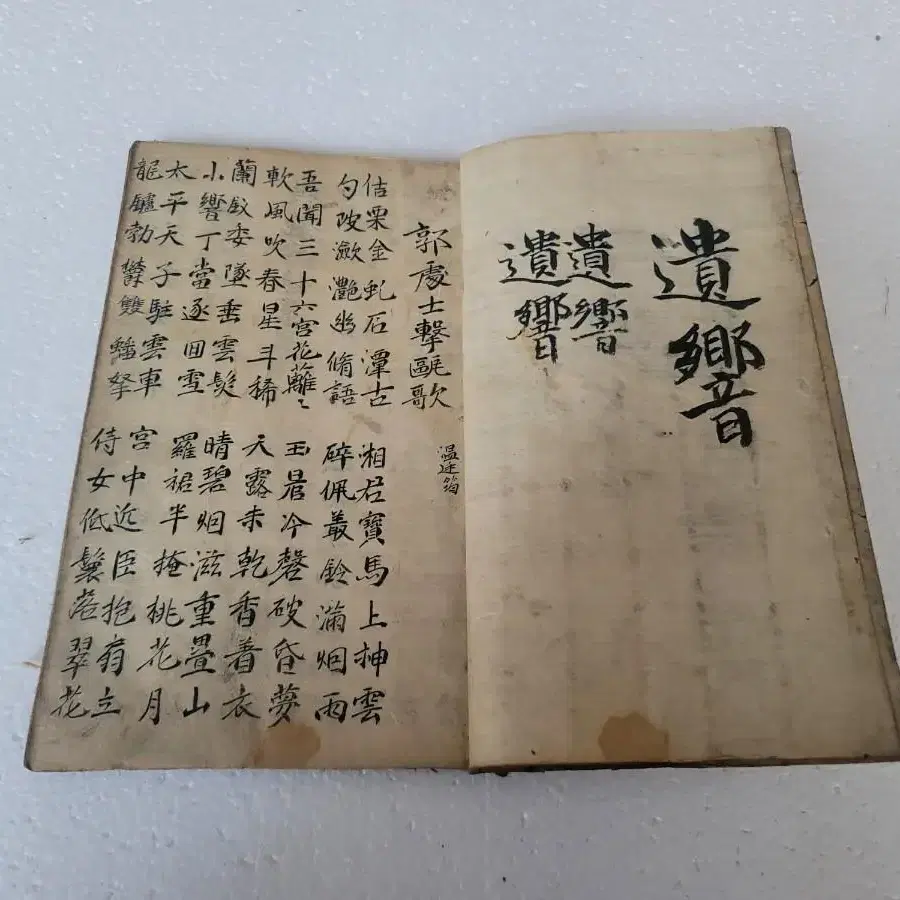 遺響
遺響
遺響
郭處士擊甌歌 温廷筠
佶栗金虬石潭古
勺陂瀲灧幽脩語
湘君寶馬上神雲
碎佩叢鈴滿烟雨
吾聞三十六宮花蘺〻
軟風吹春星斗稀
玉晨冷磬破昏夢
天露未乾香着衣
蘭釵委墜垂雲髮
小響丁當逐回雪
晴碧烟滋重疊山
羅裙半掩桃花月
太平天子駐雲車
龍鑪勃欝雙蟠拏
宮中近臣抱扇立
侍女低鬟落翠花